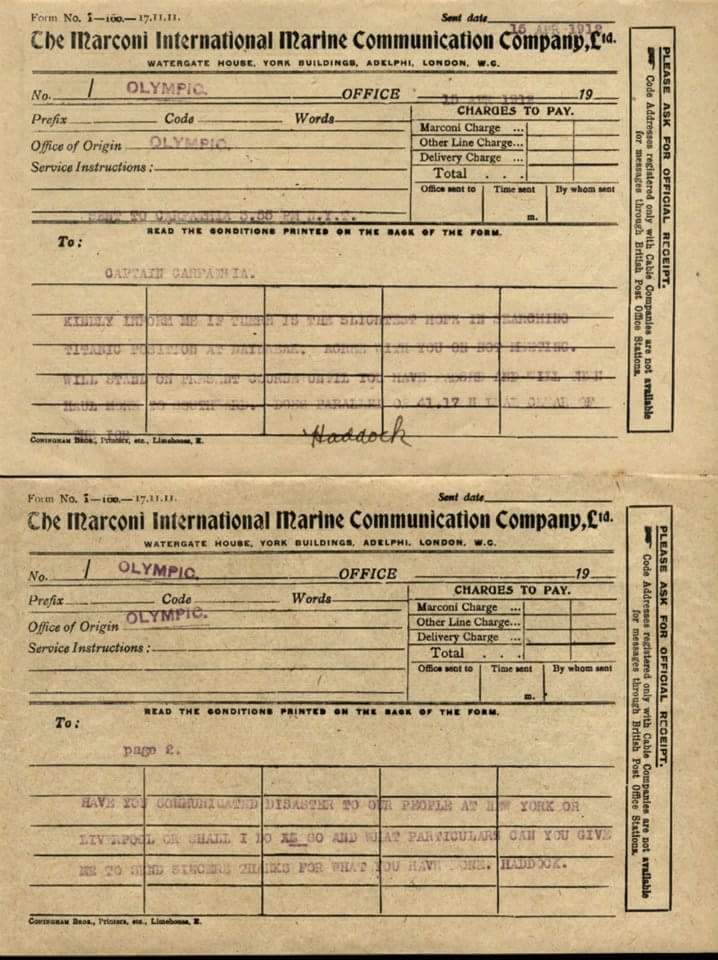 Form No. 1—100.—17.11.11. Sent date 15 APR 1912
The Marconi International Marine Communication Company, Ltd.
WATERGATE HOUSE, YORK BUILDINGS, ADELPHI, LONDON, W.C.
No. 1 OLYMPIC. OFFICE 1912 19
Prefix Code Words
CHARGES TO PAY.
Marconi Charge ...
Other Line Charge...
Delivery Charge ...
Total . . .
Office of Origin OLYMPIC.
Service Instructions:
Office sent to Time sent By whom sent
m.
SENT TO CARPATHIA 3.55 PM N.Y.T.
READ THE CONDITIONS PRINTED ON THE BACK OF THE FORM.
To:
CAPTAIN CARPATHIA.
KINDLY INFORM ME IF THERE IS THE SLIGHTEST HOPE IN SEARCHING
TITANIC POSITION AT DAYBREAK. AGREE WITH YOU ON NOT MEETING.
WILL STAND ON PRESENT COURSE UNTIL YOU HAVE PASSED AND WILL THEN
HAUL MORE TO SOUTHWARD. DOES PARALLEL OF 41.17 N LEAD CLEAR OF
THE ICE
Haddock
CONINGHAM BROS., Printers, etc., Limehouse, E.
PLEASE ASK FOR OFFICIAL RECEIPT.
Code Addresses registered only with Cable Companies are not available
for messages through British Post Office Stations.
Form No. 1—100.—17.11.11. Sent date
The Marconi International Marine Communication Company, Ltd.
WATERGATE HOUSE, YORK BUILDINGS, ADELPHI, LONDON, W.C.
No. 1 OLYMPIC. OFFICE 19
Prefix Code Words
CHARGES TO PAY.
Marconi Charge ...
Other Line Charge...
Delivery Charge ...
Total . . .
Office of Origin OLYMPIC.
Service Instructions:
Office sent to Time sent By whom sent
m.
READ THE CONDITIONS PRINTED ON THE BACK OF THE FORM.
To:
page 2.
HAVE YOU COMMUNICATED DISASTER TO OUR PEOPLE AT NEW YORK OR
LIVERPOOL OR SHALL I DO SO AND WHAT PARTICULARS CAN YOU GIVE
ME TO SEND SINCERE THANKS FOR WHAT YOU HAVE DONE. HADDOCK.
CONINGHAM BROS., Printers, etc., Limehouse, E.
PLEASE ASK FOR OFFICIAL RECEIPT.
Code Addresses registered only with Cable Companies are not available
for messages through British Post Office Stations.